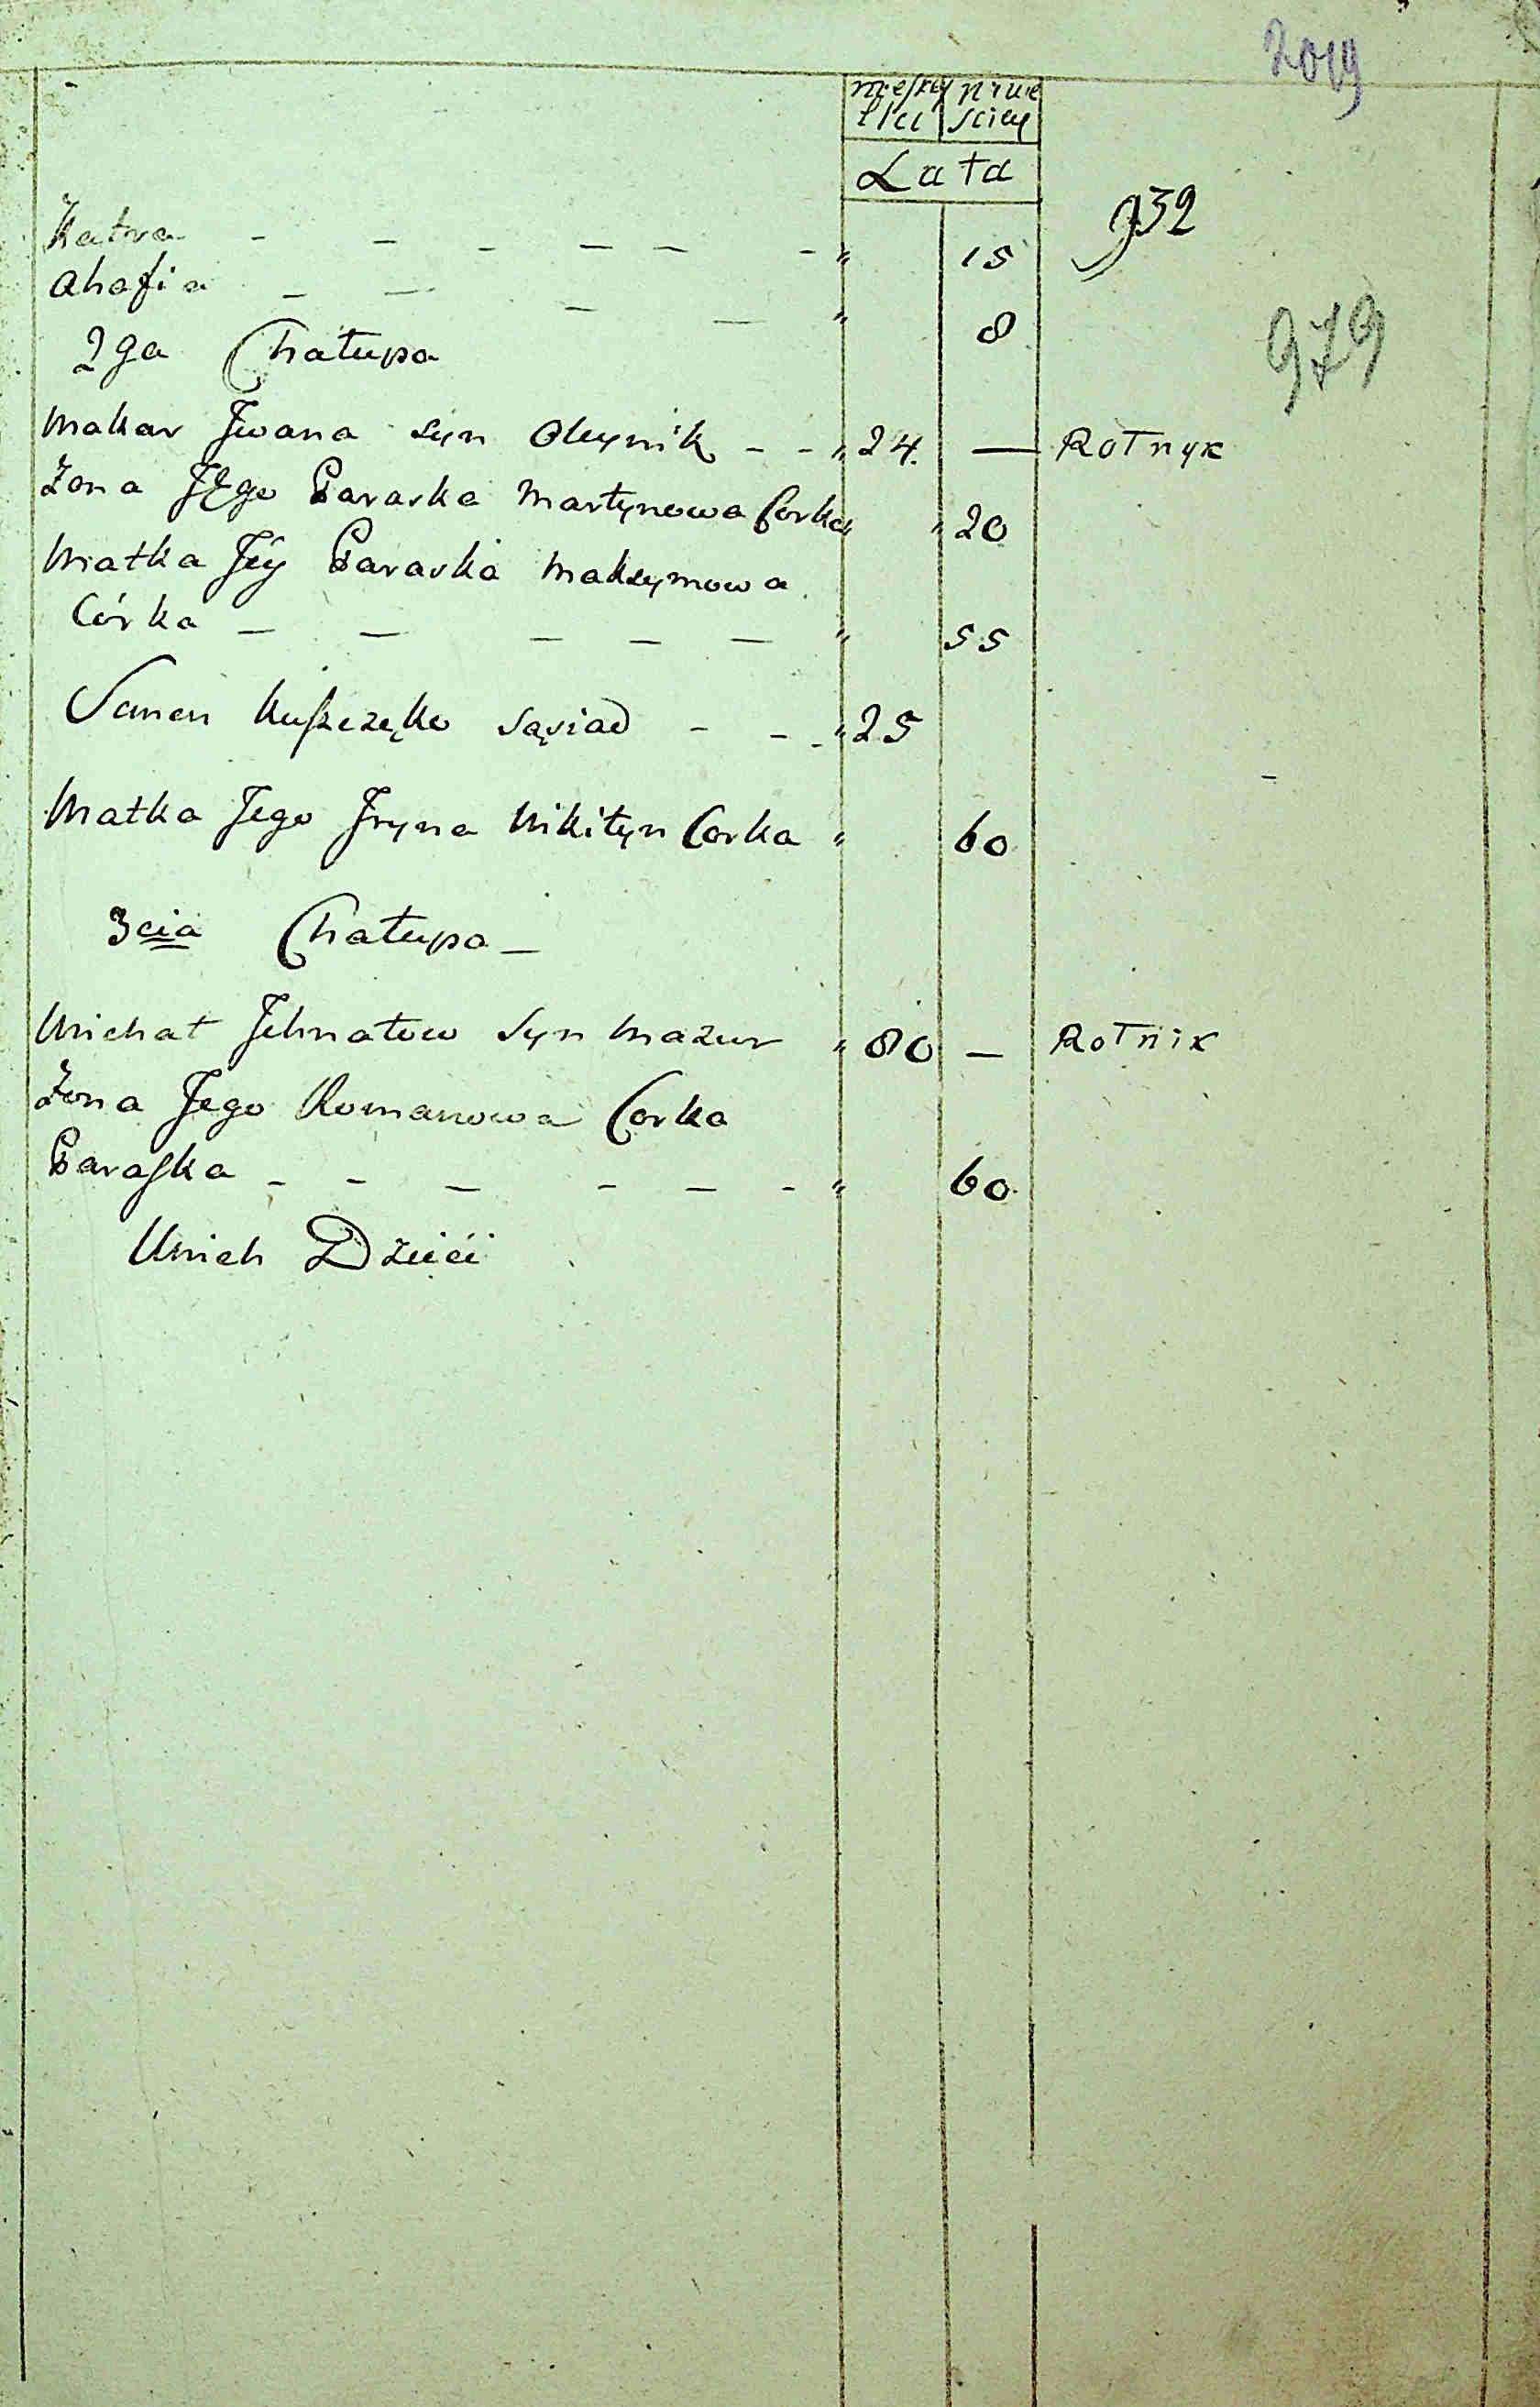 2019
męskij płci niewieściej
Lata
932
Katra - - - - - - " 15
Ahafia - - - - " 8
979
2ga Chałupa
Makar Jwana syn Oleynik - - " 24. — Rolnyk
Żona Jego Paraska Martynowa Corka " " 20
Matka Jey Paraska Maksymowa
Córka - - - - - " 55
Semen Kuszczęko Sąsiad - - - " 25
Matka Jego Jryna Mikityn Corka " 60
3cia Chałupa -
Michał Jehnatow Syn Mazur " 80 — Rolnik
Żona Jego Romanowa Corka
Paraska - - - - - - " 60.
Unich Dzieci